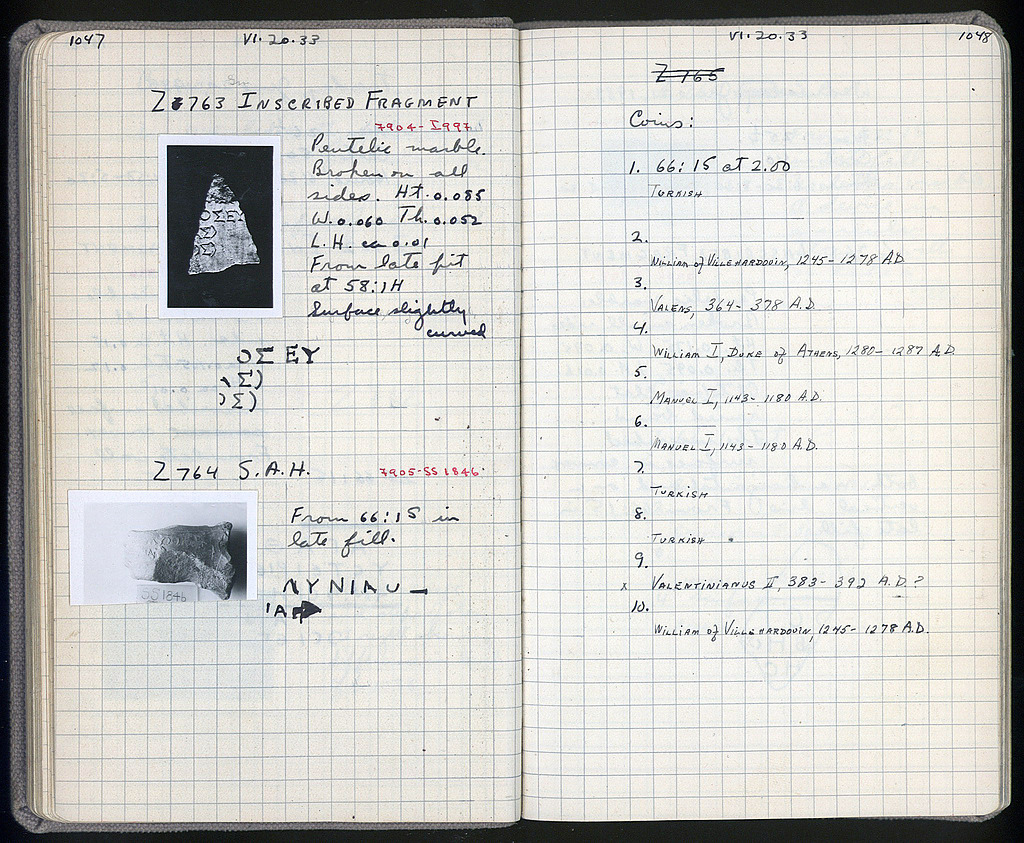 1047
VI·20·33
Z 763 INSCRIBED FRAGMENT
7904-I997
Pentelic marble.
Broken on all
sides. Ht. 0.085
W. 0.060 Th. 0.052
L.H. ca 0.01
From late pit
at 58:1H
Surface slightly
curved
ΟΣ ΕΥ
Σ)
Σ)
Z 764 S.A.H.
7905-SS 1846
From 66:15 in
late fill.
ΛΥΝΙΛΥ
SS 1846
'Α
VI·20·33
1048
Z 765
Coins:
1. 66:15 at 2.00
TURKISH
2.
WILLIAM of VILLEHARDOUIN, 1245-1278 AD
3.
VALENS, 364-378 A.D.
4.
WILLIAM I, DUKE of ATHENS, 1280-1287 A.D.
5.
MANUEL I, 1143-1180 A.D.
6.
MANUEL I, 1143-1180 A.D.
7.
TURKISH
8.
TURKISH
9.
x VALENTINIANUS II, 383-392 A.D.?
10.
WILLIAM of VILLEHARDOUIN, 1245-1278 A.D.